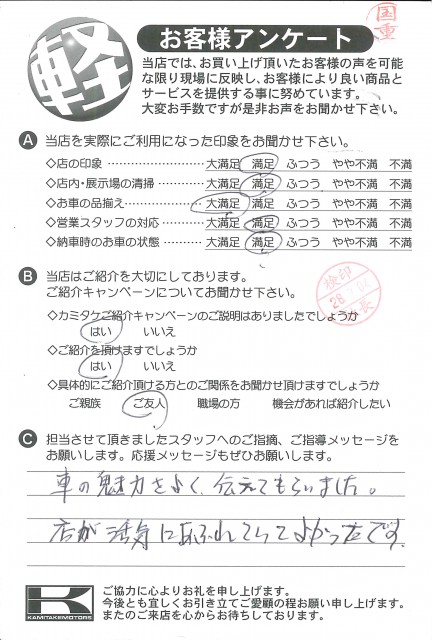 国重
軽
お客様アンケート
当店では、お買い上げ頂いたお客様の声を可能
な限り現場に反映し、お客様により良い商品と
サービスを提供する事に努めています。
大変お手数ですが是非お声をお聞かせ下さい。
A 当店を実際にご利用になった印象をお聞かせ下さい。
◇店の印象 大満足 満足 ふつう やや不満 不満
◇店内・展示場の清掃 大満足 満足 ふつう やや不満 不満
◇お車の品揃え 大満足 満足 ふつう やや不満 不満
◇営業スタッフの対応 大満足 満足 ふつう やや不満 不満
◇納車時のお車の状態 大満足 満足 ふつう やや不満 不満
B 当店はご紹介を大切にしております。
ご紹介キャンペーンについてお聞かせ下さい。
検印
長
◇カミタケご紹介キャンペーンのご説明はありましたでしょうか
はい いいえ
◇ご紹介を頂けますでしょうか
はい いいえ
◇具体的にご紹介頂ける方とのご関係をお聞かせ頂けますでしょうか
ご親族 ご友人 職場の方 機会があれば紹介したい
C 担当させて頂きましたスタッフへのご指摘、ご指導メッセージを
お願いします。応援メッセージもぜひお願いします。
車の魅力をよく、伝えてもらいました。
店が活気にあふれていてよかったです。
K
KAMITAKEMOTORS
ご協力に心よりお礼を申し上げます。
今後とも宜しくお引き立てご愛顧の程お願い申し上げます。
またのご来店を心からお待ちしております。